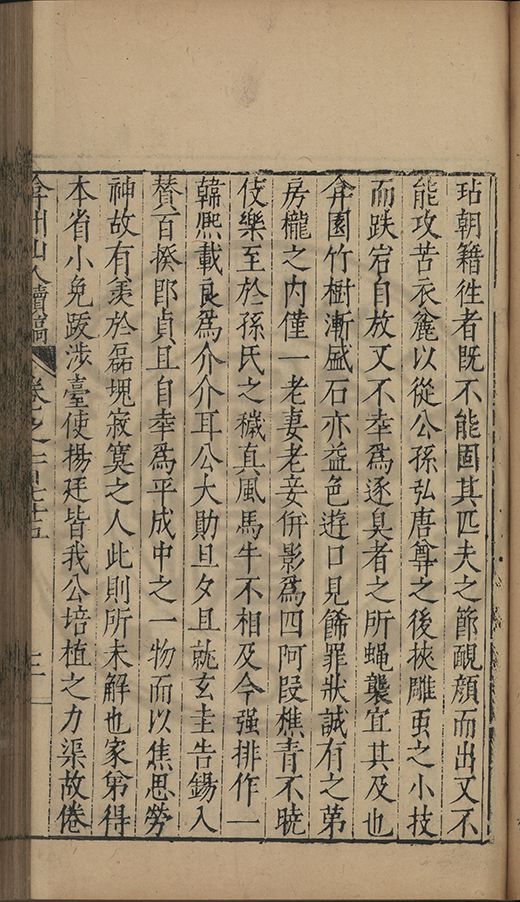 玷朝籍徃者既不能固其匹夫之節靦顔而出又不
能攻苦衣麄以從公孫弘唐尊之後挾雕䖝之小技
而跌宕自放又不幸爲逐臭者之所蝇襲宜其及也
弇園竹樹漸盛石亦益色遊口見餙罪狀誠有之第
房櫳之内僅一老妻老妾倂影爲四阿叚樵青不暁
伎樂至於孫氏之穢真風馬牛不相及今强排作一
韓熈載良爲介介耳公大勛旦夕且就玄圭告鍚入
賛百揆郎貞且自幸爲平成中之一物而以焦思勞
神故有羡於磊塊寂寞之人此則所未解也家第得
本省小免跋涉臺使揚廷皆我公培植之力渠故倦
弇州山人續稿 卷之一百七十五 三